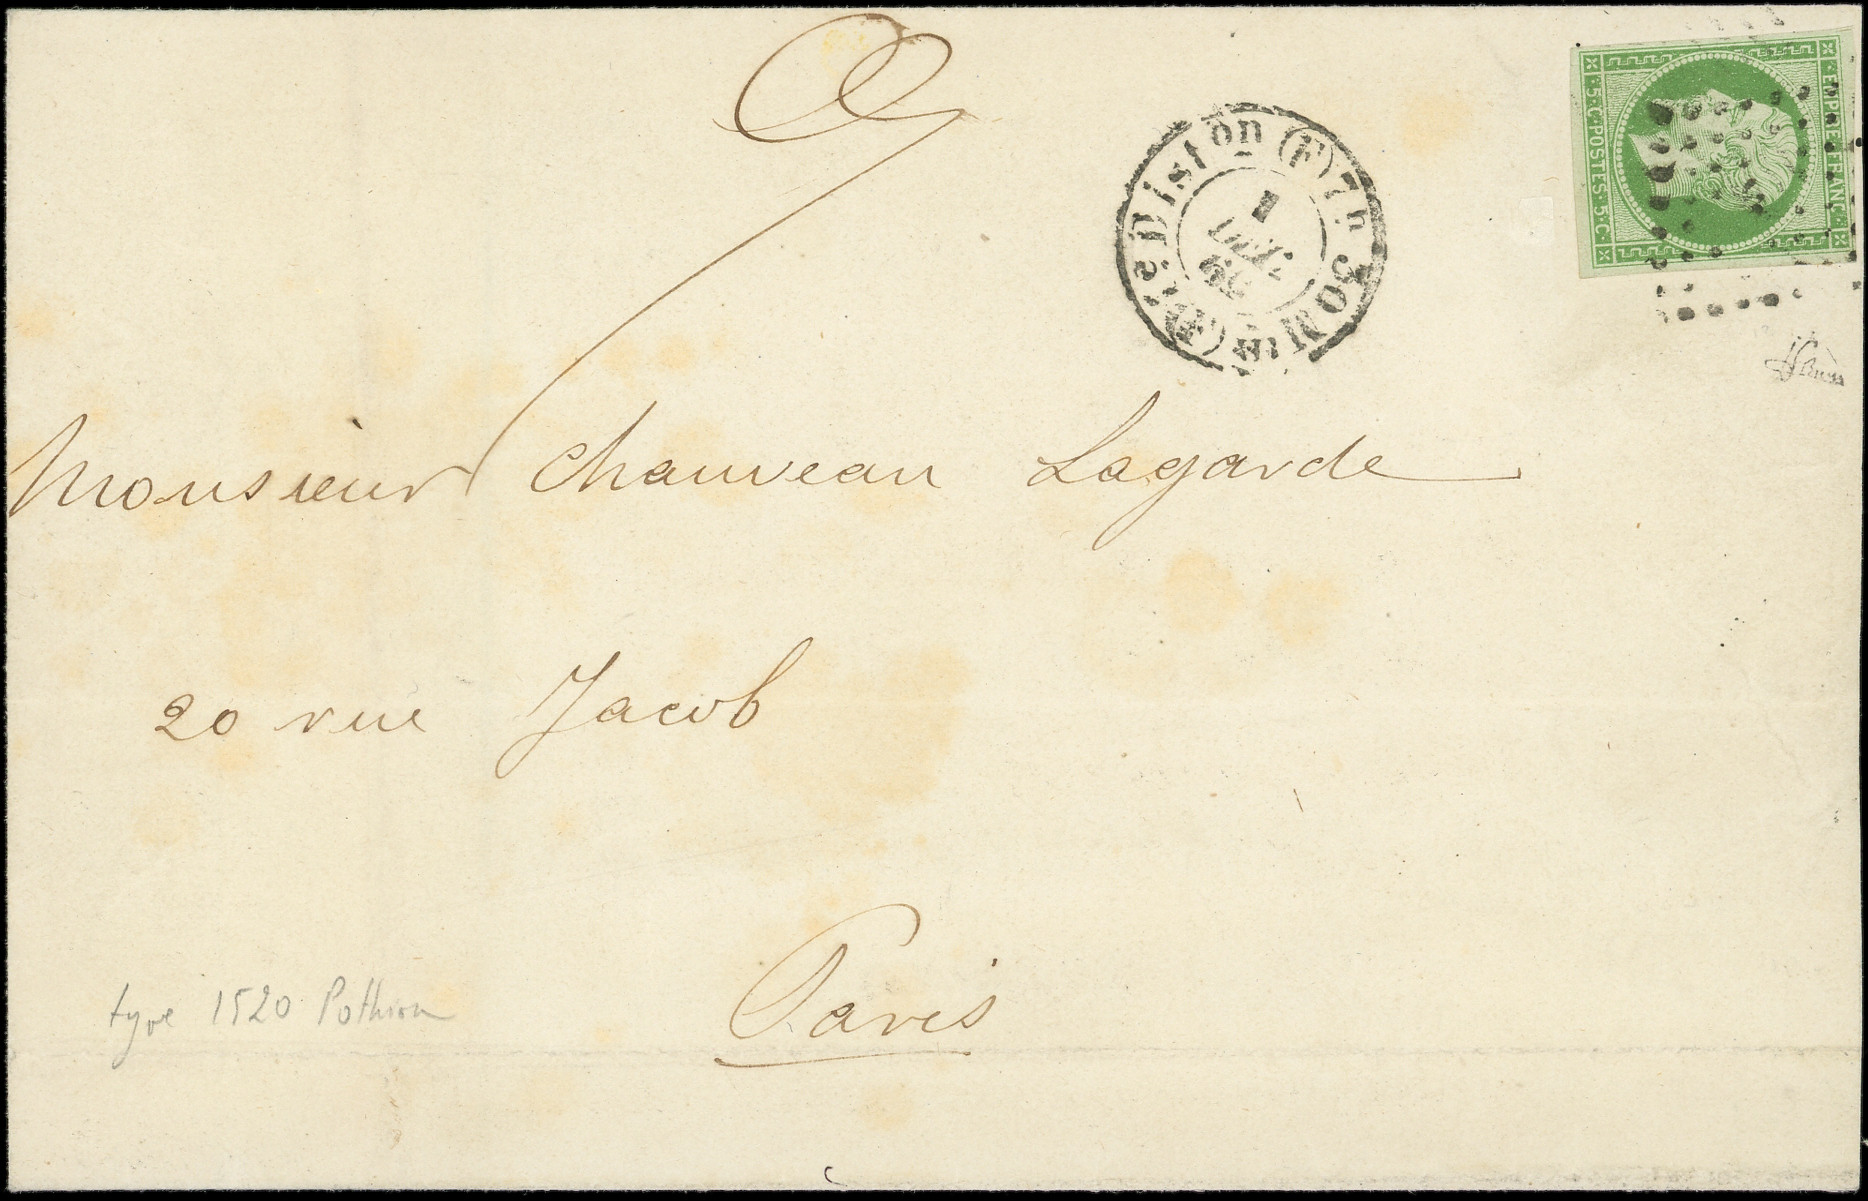 EMPIRE FRANC.
5·C·POSTES·5·C·
1re Diston (F) 7h 30 Min
1
Monsieur Chauveau Lagarde
20 rue Jacob
Paris
type 1520 Pothion